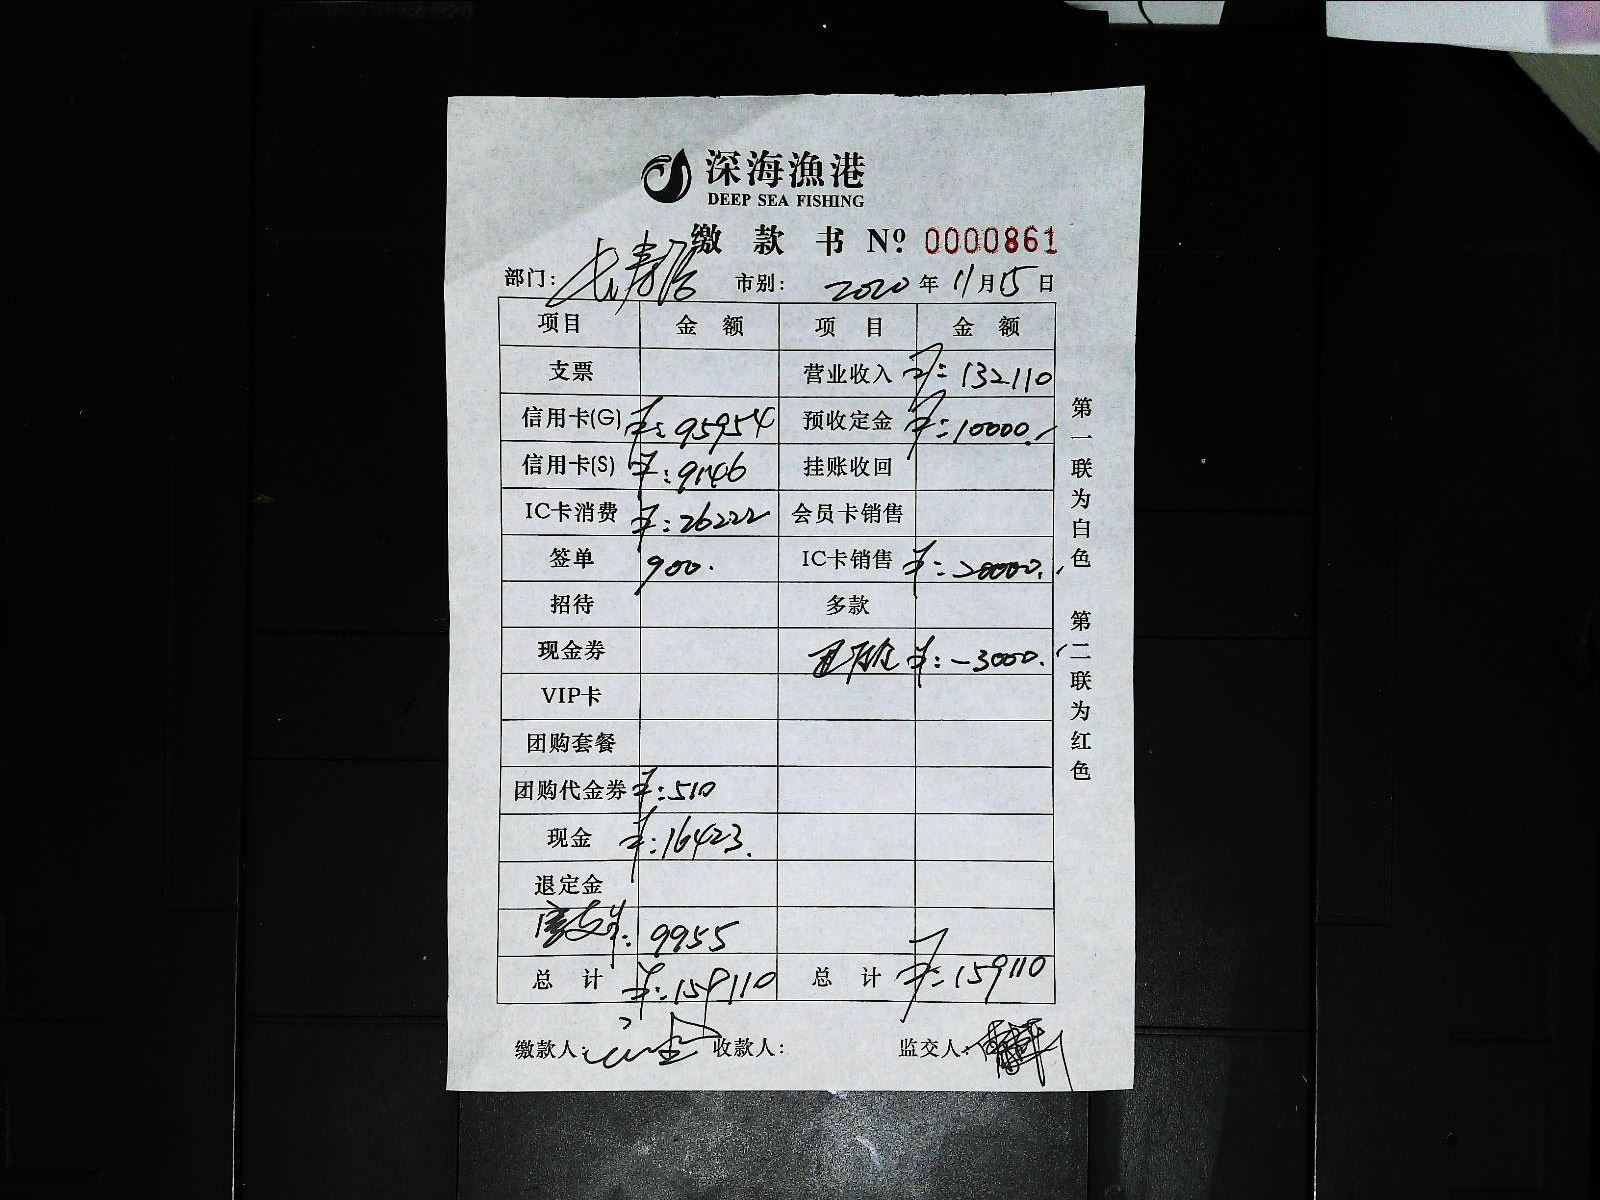 深海漁港
DEEP SEA FISHING
缴款书 Nº 0000861
部门: 长寿路 市别: 2020年11月15日
项目 金额 项目 金额
支票 营业收入 ¥:132110
信用卡(G) ¥:95954 预收定金 ¥:10000.-
信用卡(S) ¥:9146 挂账收回
IC卡消费 ¥:26222 会员卡销售
签单 900. IC卡销售 ¥:20000.-
招待 多款
现金券 ¥:-3000.-
VIP卡
团购套餐
团购代金券 ¥:510
现金 ¥:16423.
退定金
9955
总计 ¥:159110 总计 ¥:159110
缴款人: 收款人: 监交人:
第一联为白色 第二联为红色